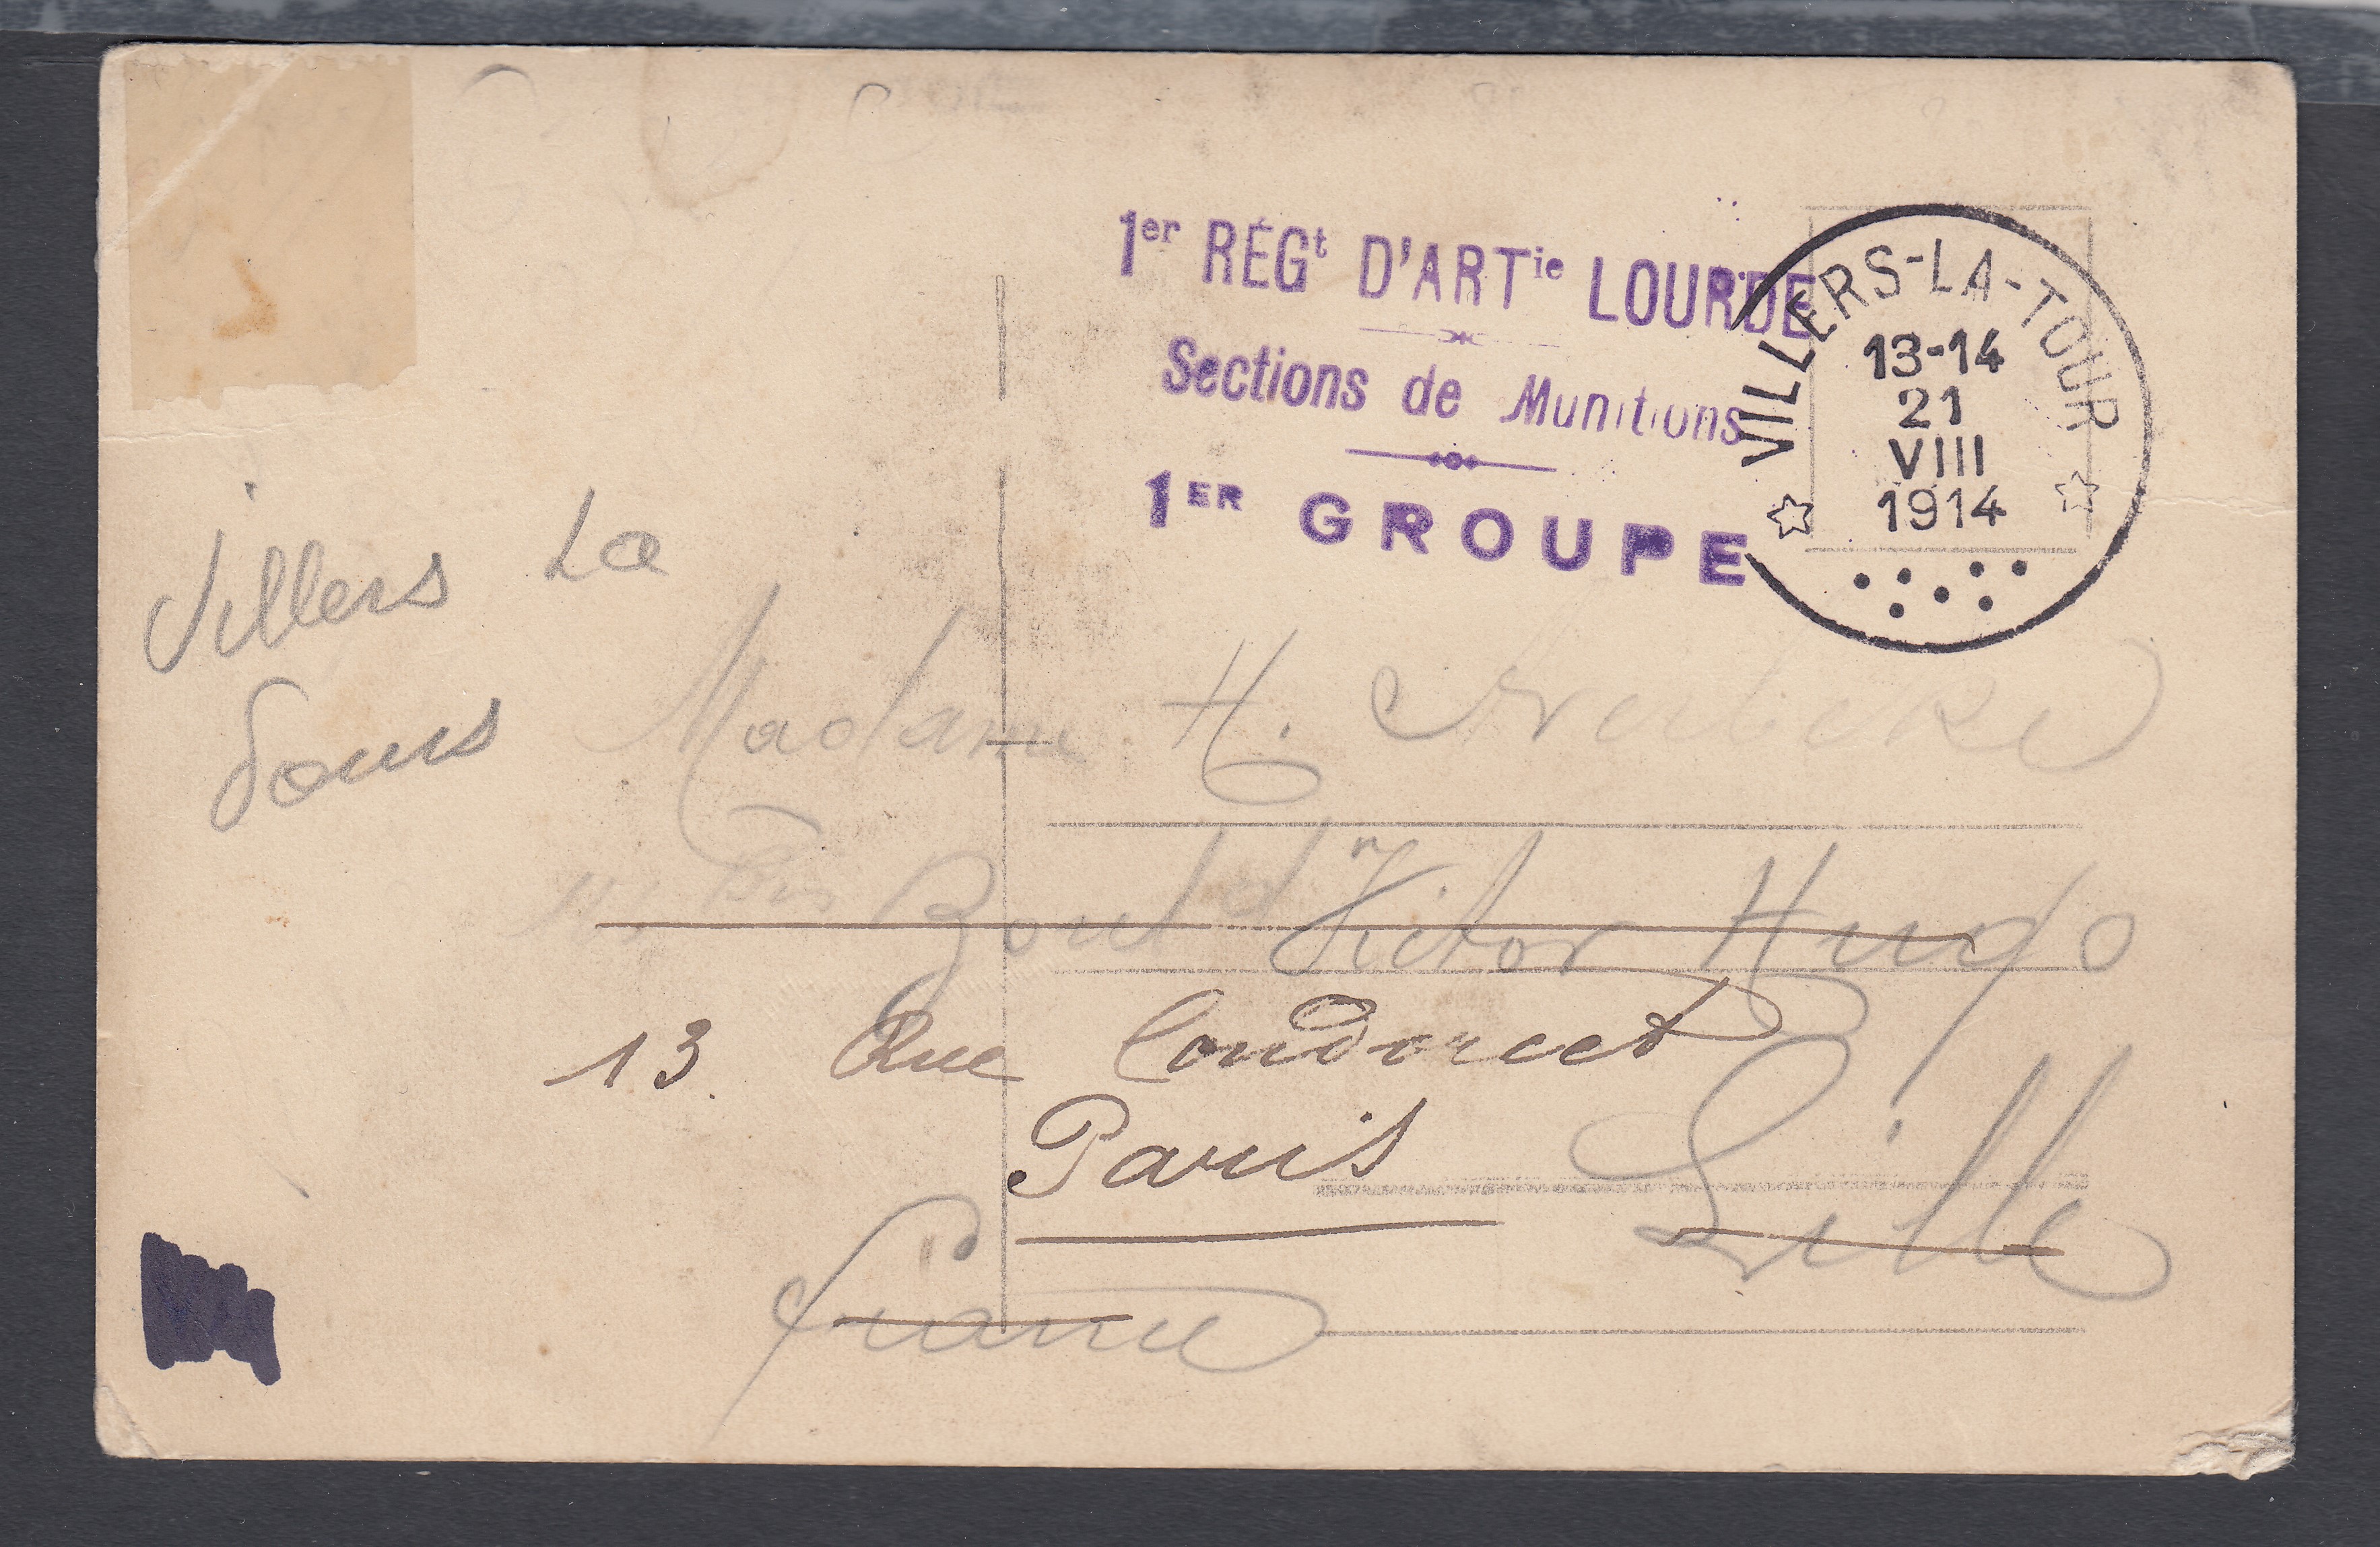 1er RÉGt D'ARTie LOURDE
Sections de Munitions
1ER GROUPE
VILLERS-LA-TOUR
13-14
21
VIII
1914
Villers La
Tour
Madame H.
Bould Victor Hugo
13. Rue Condorcet
Paris
Lille
France